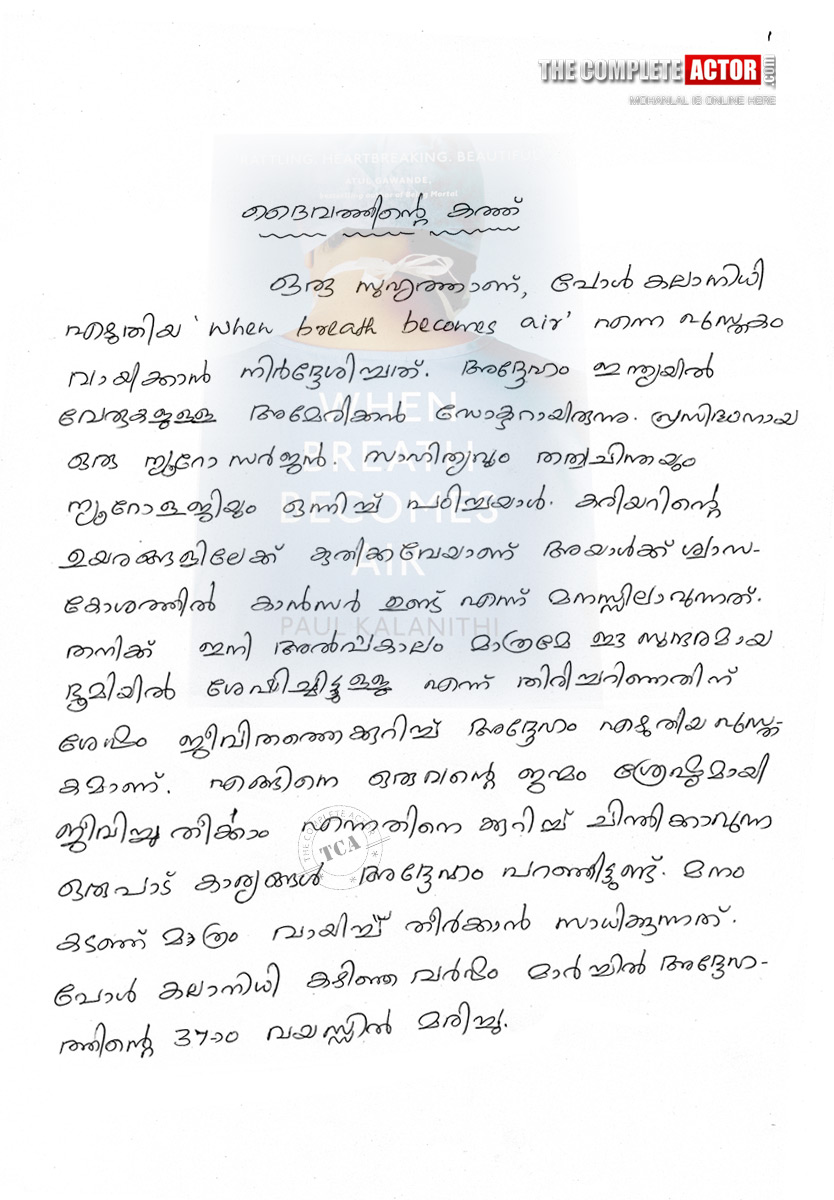 1
THE COMPLETE ACTOR .com
MOHANLAL IS ONLINE HERE
RATTLING. HEARTBREAKING. BEAUTIFUL.
ATUL GAWANDE,
Being Mortal
ദൈവത്തിന്റെ കത്ത്
ഒരു സുഹൃത്താണ്, പോൾ കലാനിധി
എഴുതിയ 'When breath becomes air' എന്ന പുസ്തകം
വായിക്കാൻ നിർദ്ദേശിച്ചത്. അദ്ദേഹം ഇന്ത്യയിൽ
വേരുകളുള്ള അമേരിക്കൻ ഡോക്ടറായിരുന്നു. പ്രസിദ്ധനായ
ഒരു ന്യൂറോ സർജൻ. സാഹിത്യവും തത്വചിന്തയും
ന്യൂറോളജിയും ഒന്നിച്ച് പഠിച്ചയാൾ. കരിയറിന്റെ
ഉയരങ്ങളിലേക്ക് കുതിക്കവേയാണ് അയാൾക്ക് ശ്വാസ-
കോശത്തിൽ കാൻസർ ഉണ്ട് എന്ന് മനസ്സിലാവുന്നത്.
തനിക്ക് ഇനി അൽപ്പകാലം മാത്രമേ ഈ സുന്ദരമായ
ഭൂമിയിൽ ശേഷിച്ചിട്ടുള്ളു എന്ന് തിരിച്ചറിഞ്ഞതിന്
ശേഷം ജീവിതത്തെക്കുറിച്ച് അദ്ദേഹം എഴുതിയ പുസ്ത-
കമാണ്. എങ്ങിനെ ഒരുവന്റെ ജന്മം ശ്രേഷ്ഠമായി
ജീവിച്ചു തീർക്കാം എന്നതിനെ കുറിച്ച് ചിന്തിക്കാവുന്ന
ഒരുപാട് കാര്യങ്ങൾ അദ്ദേഹം പറഞ്ഞിട്ടുണ്ട്. മനം
കടഞ്ഞ് മാത്രം വായിച്ച് തീർക്കാൻ സാധിക്കുന്നത്.
പോൾ കലാനിധി കഴിഞ്ഞ വർഷം മാർച്ചിൽ അദ്ദേഹ-
ത്തിന്റെ 37ാം വയസ്സിൽ മരിച്ചു.
WHEN
BREATH
BECOMES
AIR
PAUL KALANITHI
THE COMPLETE ACTOR
TCA